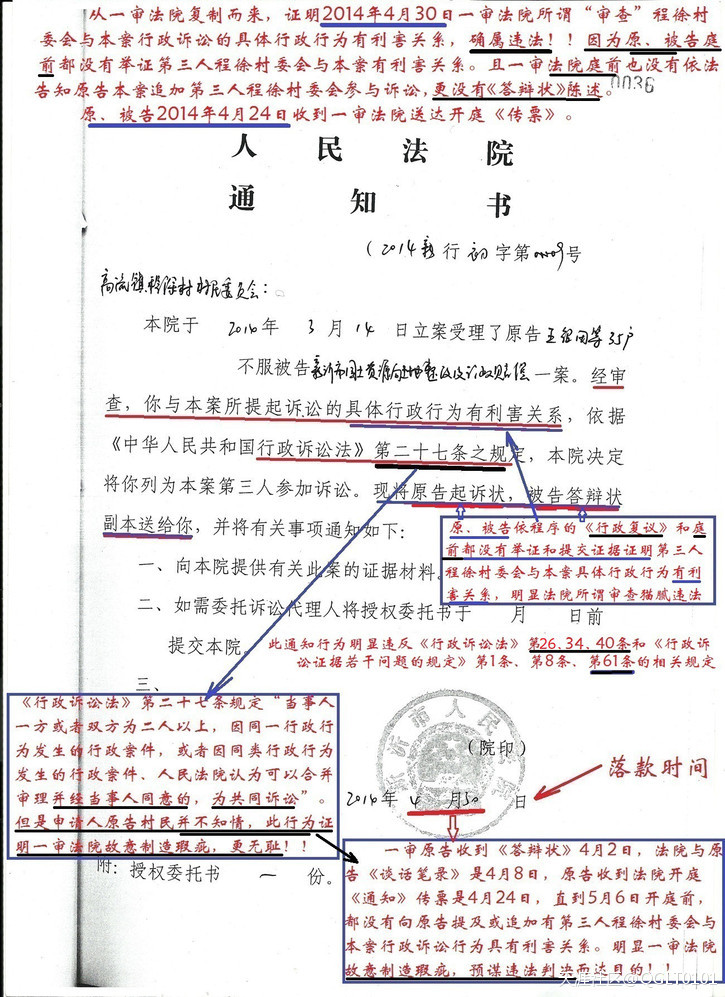 从一审法院复制而来，证明2014年4月30日一审法院所谓“审查”程徐村
委会与本案行政诉讼的具体行政行为有利害关系，确属违法！！因为原、被告庭
前都没有举证第三人程徐村委会与本案有利害关系。且一审法院庭前也没有依法
告知原告本案追加第三人程徐村委会参与诉讼，更没有《答辩状》陈述。
0036
原、被告2014年4月24日收到一审法院送达开庭《传票》。
人民法院
通知书
（2014新行初字第 号
高流镇程徐村村民委员会：
本院于 2014年 3月14日立案受理了原告王 等35户
不服被告新沂市国土资源局 一案。经审
查，你与本案所提起诉讼的具体行政行为有利害关系，依据
《中华人民共和国行政诉讼法》第二十七条之规定，本院决定
将你列为本案第三人参加诉讼。现将原告起诉状，被告答辩状
副本送给你，并将有关事项通知如下：
一、向本院提供有关此案的证据材料。
二、如需委托诉讼代理人将授权委托书于 月 日前
提交本院。
三、
原、被告依程序的《行政复议》和庭
前都没有举证和提交证据证明第三人
程徐村委会与本案具体行政行为有利
害关系，明显法院所谓审查猫腻违法
此通知行为明显违反《行政诉讼法》第26、34、40条和《行政诉
讼证据若干问题的规定》第1条、第8条、第61条的相关规定
《行政诉讼法》第二十七条规定“当事人
一方或者双方为二人以上，因同一行政行
为发生的行政案件，或者因同类行政行为
发生的行政案件、人民法院认为可以合并
审理并经当事人同意的，为共同诉讼”。
但是申请人原告村民并不知情，此行为证
明一审法院故意制造瑕疵，更无耻！！
新沂市人民法院
（院印）
2014年 4月30日
落款时间
附：授权委托书 一 份。
一审原告收到《答辩状》4月2日，法院与原
告《谈话笔录》是4月8日，原告收到法院开庭
《通知》传票是4月24日，直到5月6日开庭前，
都没有向原告提及或追加有第三人程徐村委会与
本案行政诉讼行为具有利害关系。明显一审法院
故意制造瑕疵，预谋违法判决而达目的！！
天涯社区@QGLT0101